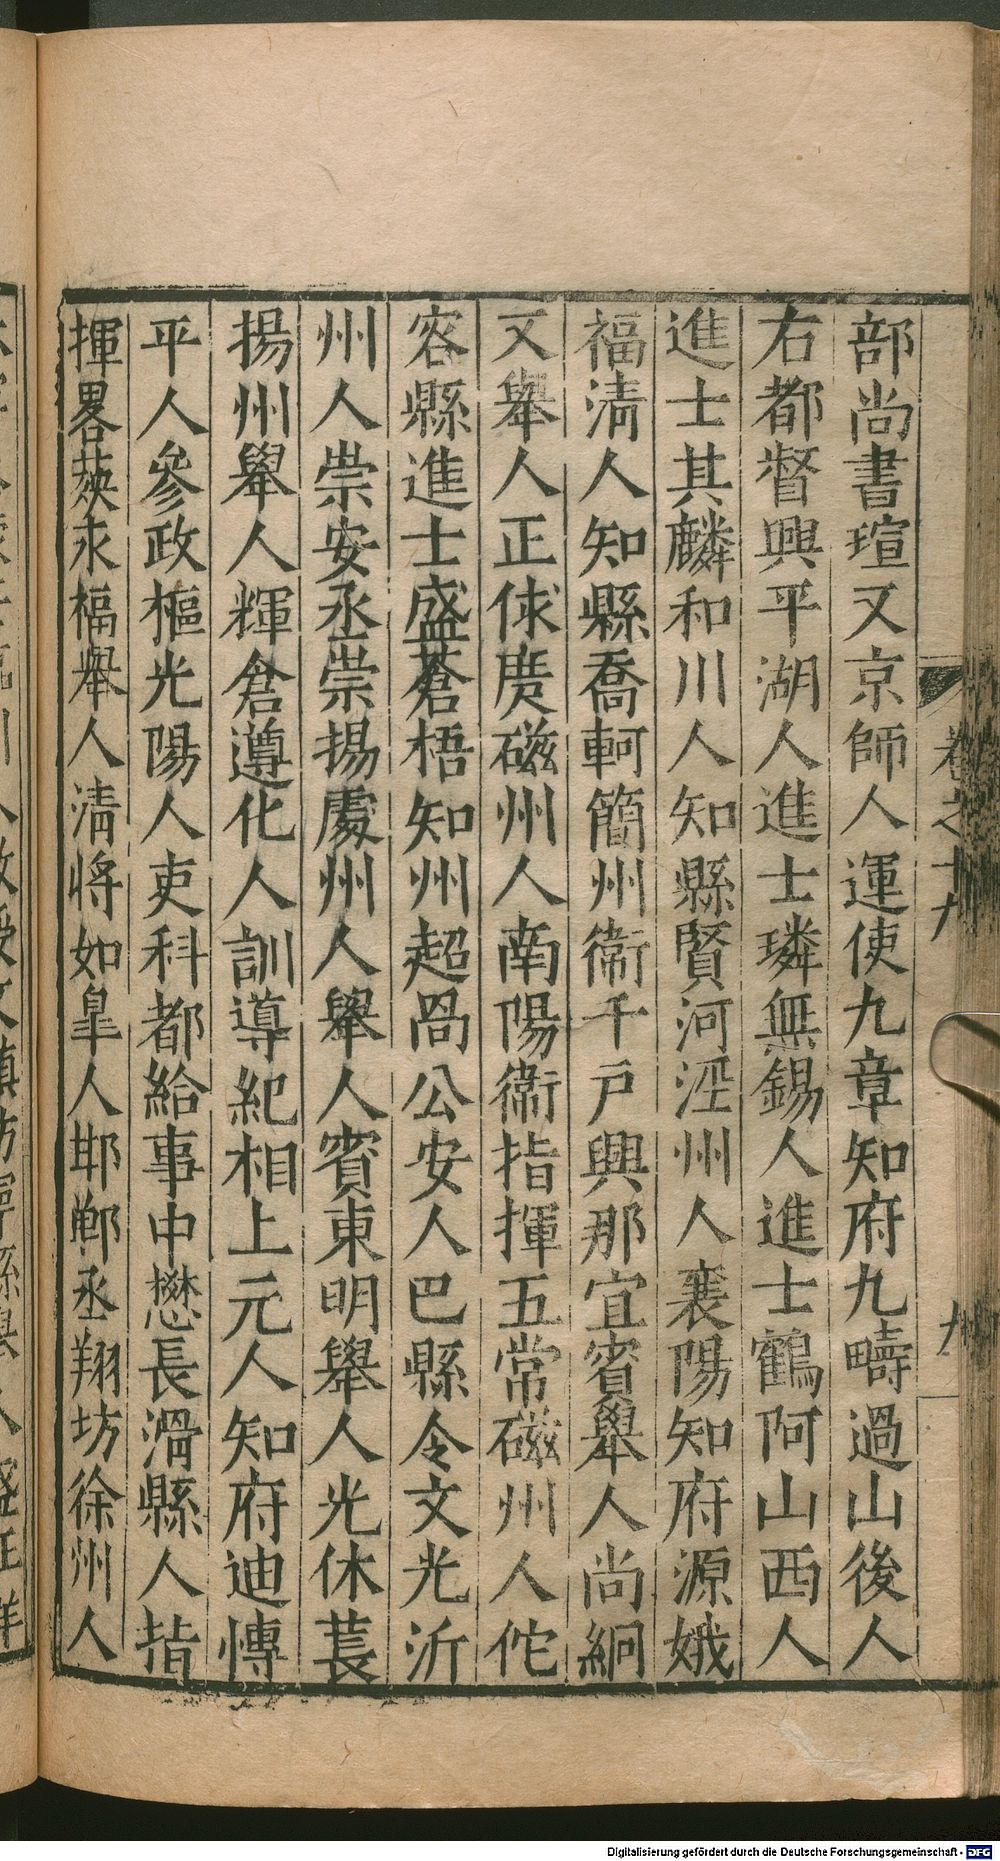 卷之十九
九
部尚書瑄又京師人運使九章知府九疇過山後人
右都督興平湖人進士璘無錫人進士鶴阿山西人
進士其麟和川人知縣賢河涇州人襄陽知府源娥
福清人知縣喬軻簡州衛千戶興那宜賓舉人尚絅
又舉人正俅廣磁州人南陽衛指揮五常磁州人佗
容縣進士盛蒼梧知州超咼公安人巴縣令文光沂
州人崇安丞崇揚處州人舉人賓東明舉人光休萇
揚州舉人輝倉遵化人訓導紀相上元人知府迪慱
平人參政樞光陽人吏科都給事中懋長滑縣人指
揮畧蒛永福舉人清將如皐人邯鄲丞翔坊徐州人
Digitalisierung gefördert durch die Deutsche Forschungsgemeinschaft - DFG